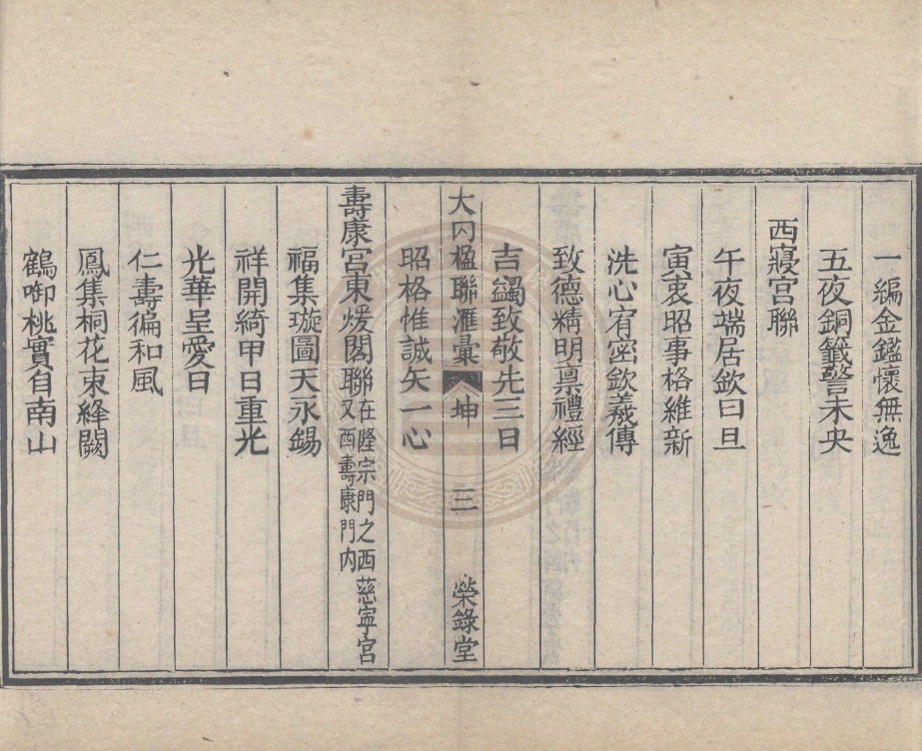 一編金鑑懷無逸
五夜銅籤警未央
西寢宮聯
午夜端居欽曰旦
寅衷昭事格維新
洗心宥密欽羲傳
致德精明禀禮經
吉蠲致敬先三日
大内楹聯滙彙 坤 三 榮錄堂
昭格惟誠矢一心
壽康宮東煖閣聯在隆宗門之西慈寧宮
又西壽康門内
福集璇圖天永錫
祥開綺甲日重光
光華呈愛日
仁壽徧和風
鳳集桐花來絳闕
鶴啣桃實自南山